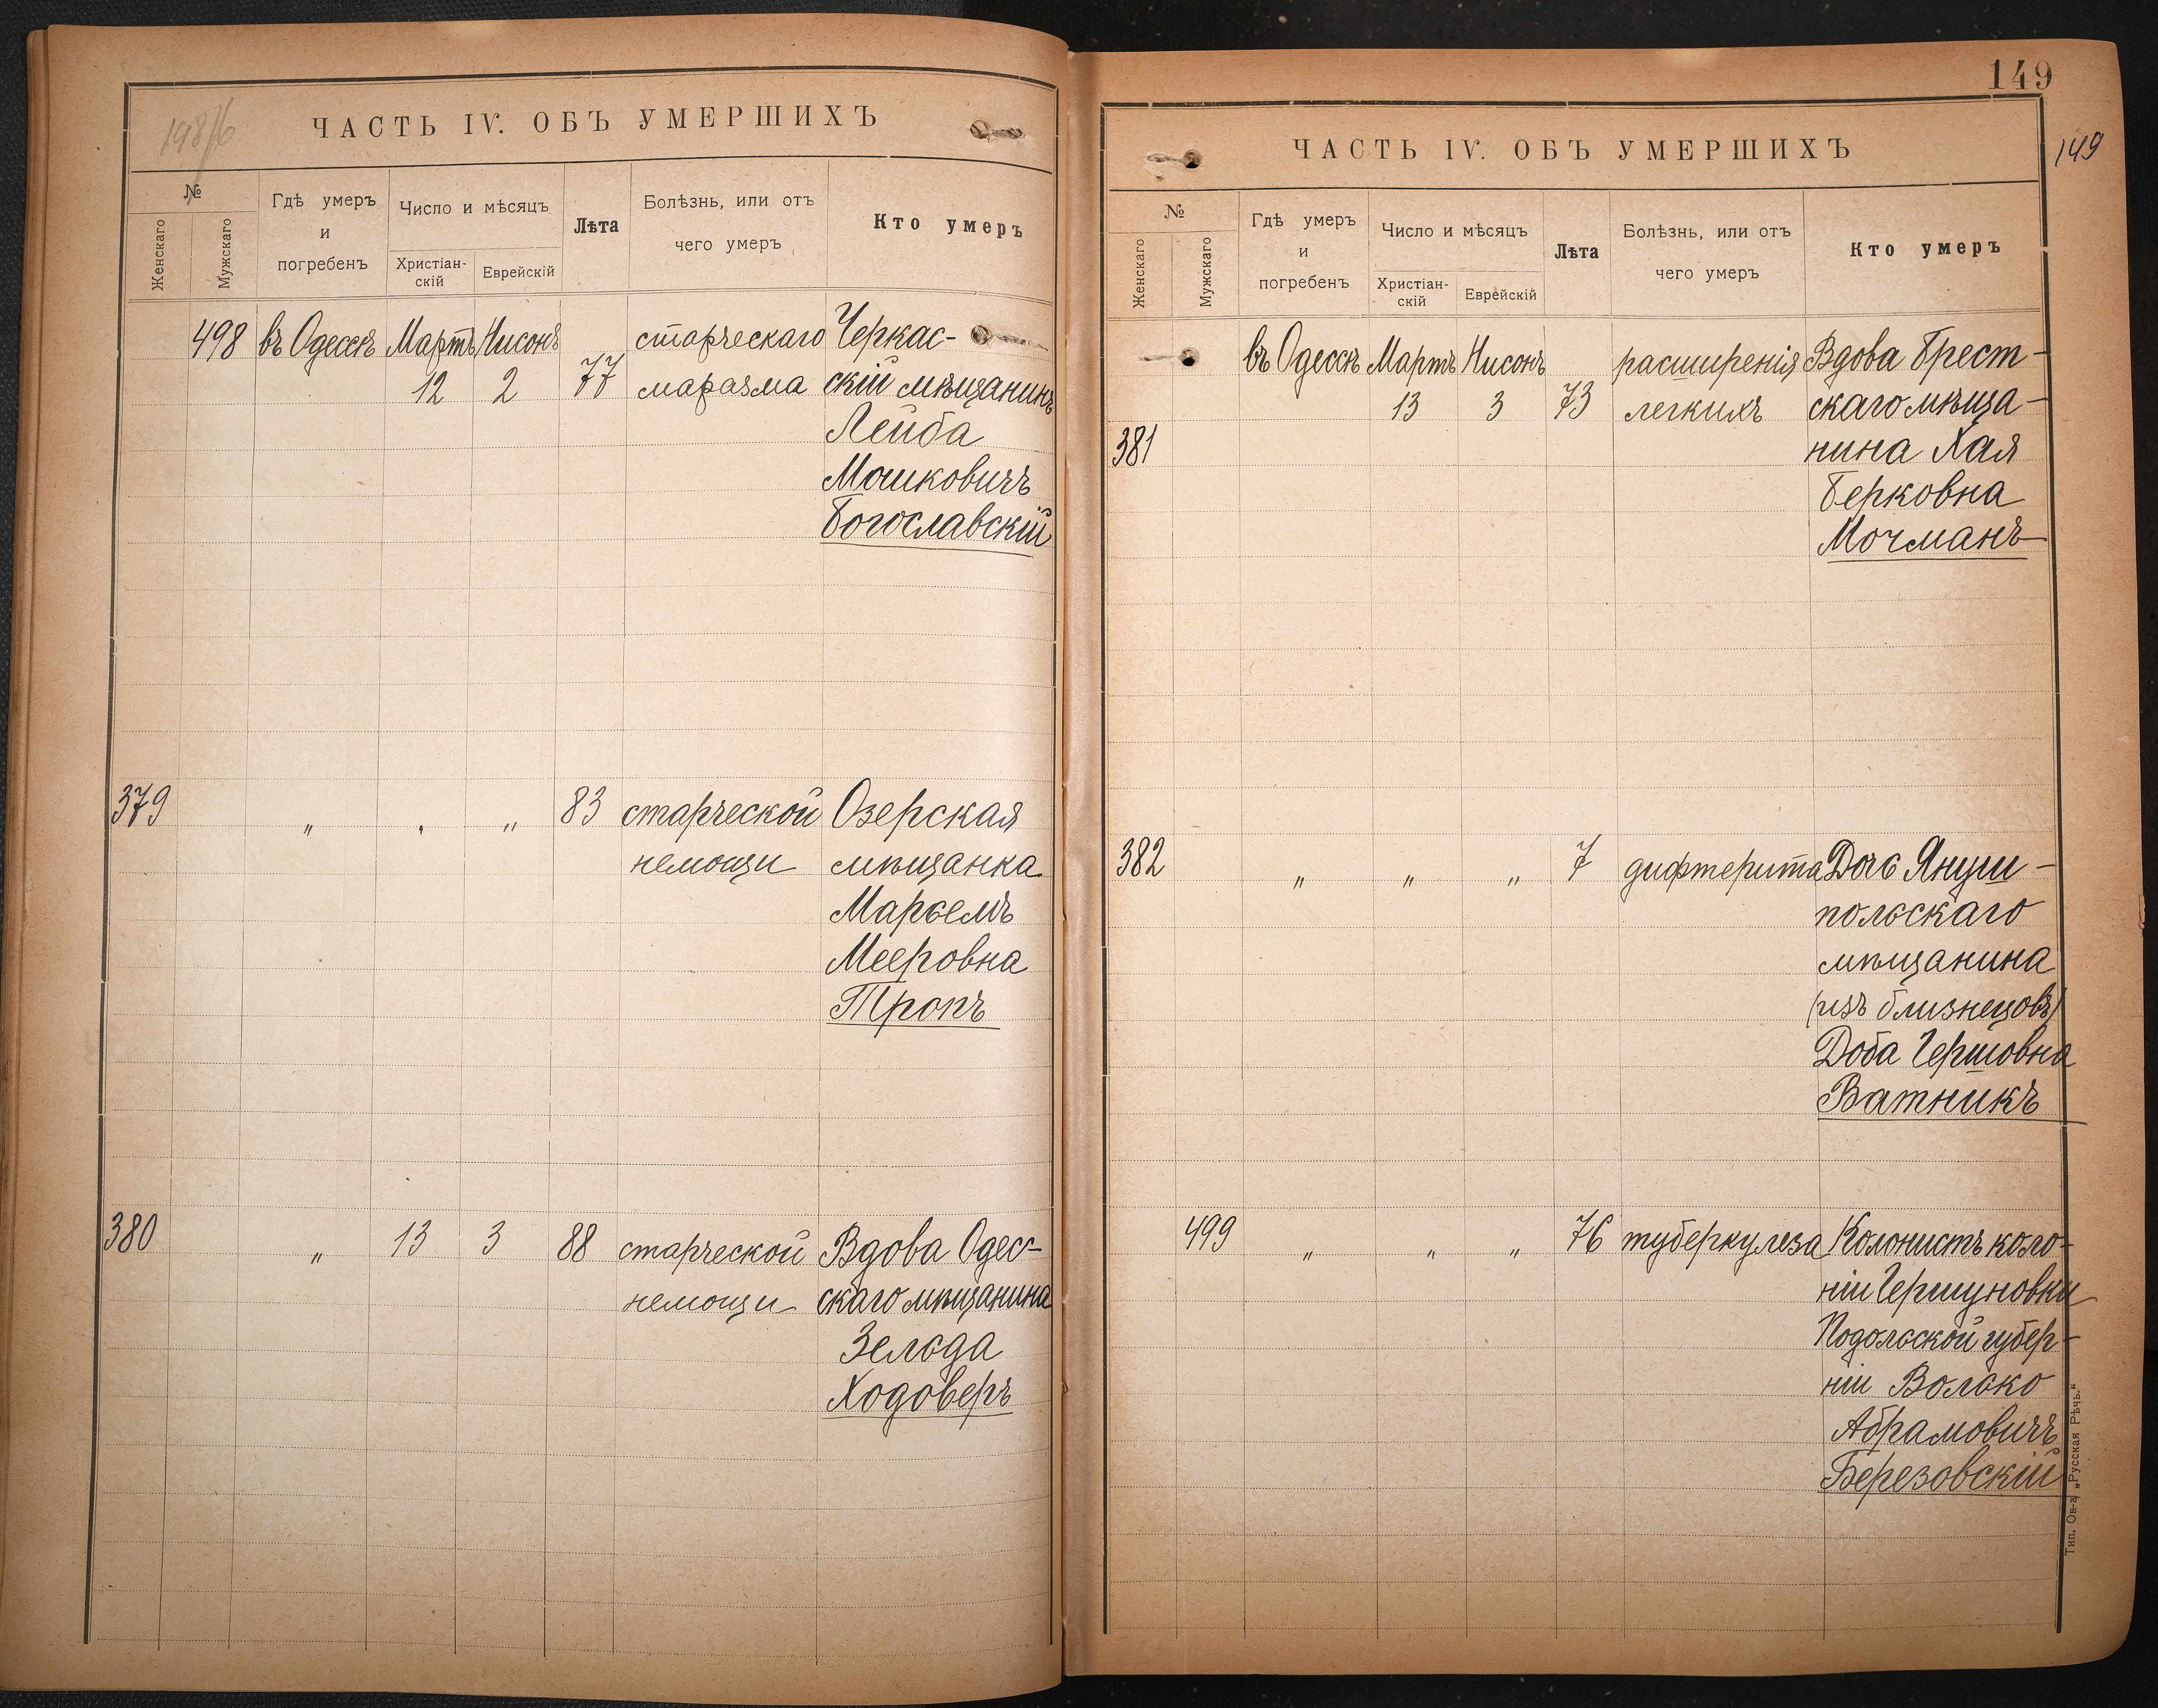 ЧАСТЬ IV. ОБЪ УМЕРШИХЪ
№
Женскаго
Мужскаго
Гдѣ умеръ
и
погребенъ
Число и мѣсяцъ
Христіан-
скій
Еврейскій
Лѣта
Болѣзнь, или отъ
чего умеръ
Кто умеръ
498 въ Одессѣ Мартъ Нисонъ старческаго Черкас-
12 2 77 маразма скій мѣщанинъ
Лейба
Мошковичъ
Богославскій
379 " " " 83 старческой Озерская
немощи мѣщанка
Марьемъ
Мееровна
Тропъ
380 " 13 3 88 старческой Вдова Одес-
немощи скаго мѣщанина
Зельда
Ходоверъ
149
149
ЧАСТЬ IV. ОБЪ УМЕРШИХЪ
№
Женскаго
Мужскаго
Гдѣ умеръ
и
погребенъ
Число и мѣсяцъ
Христіан-
скій
Еврейскій
Лѣта
Болѣзнь, или отъ
чего умеръ
Кто умеръ
въ Одессѣ Мартъ Нисонъ расширенія Вдова Брест-
13 3 73 легкихъ скаго мѣща-
381 нина Хая
Берковна
Мочманъ
382 " " " 7 дифтерита Дочь Януш-
польскаго
мѣщанина
(изъ близнецовъ)
Доба Гершовна
Ватникъ
499 " " " 76 туберкулеза Колонистъ коло-
ніи Гершуновки
Подольской губер-
ніи Волько
Абрамовичъ
Березовскій
Тип. Ов-а „Русская Рѣчь."